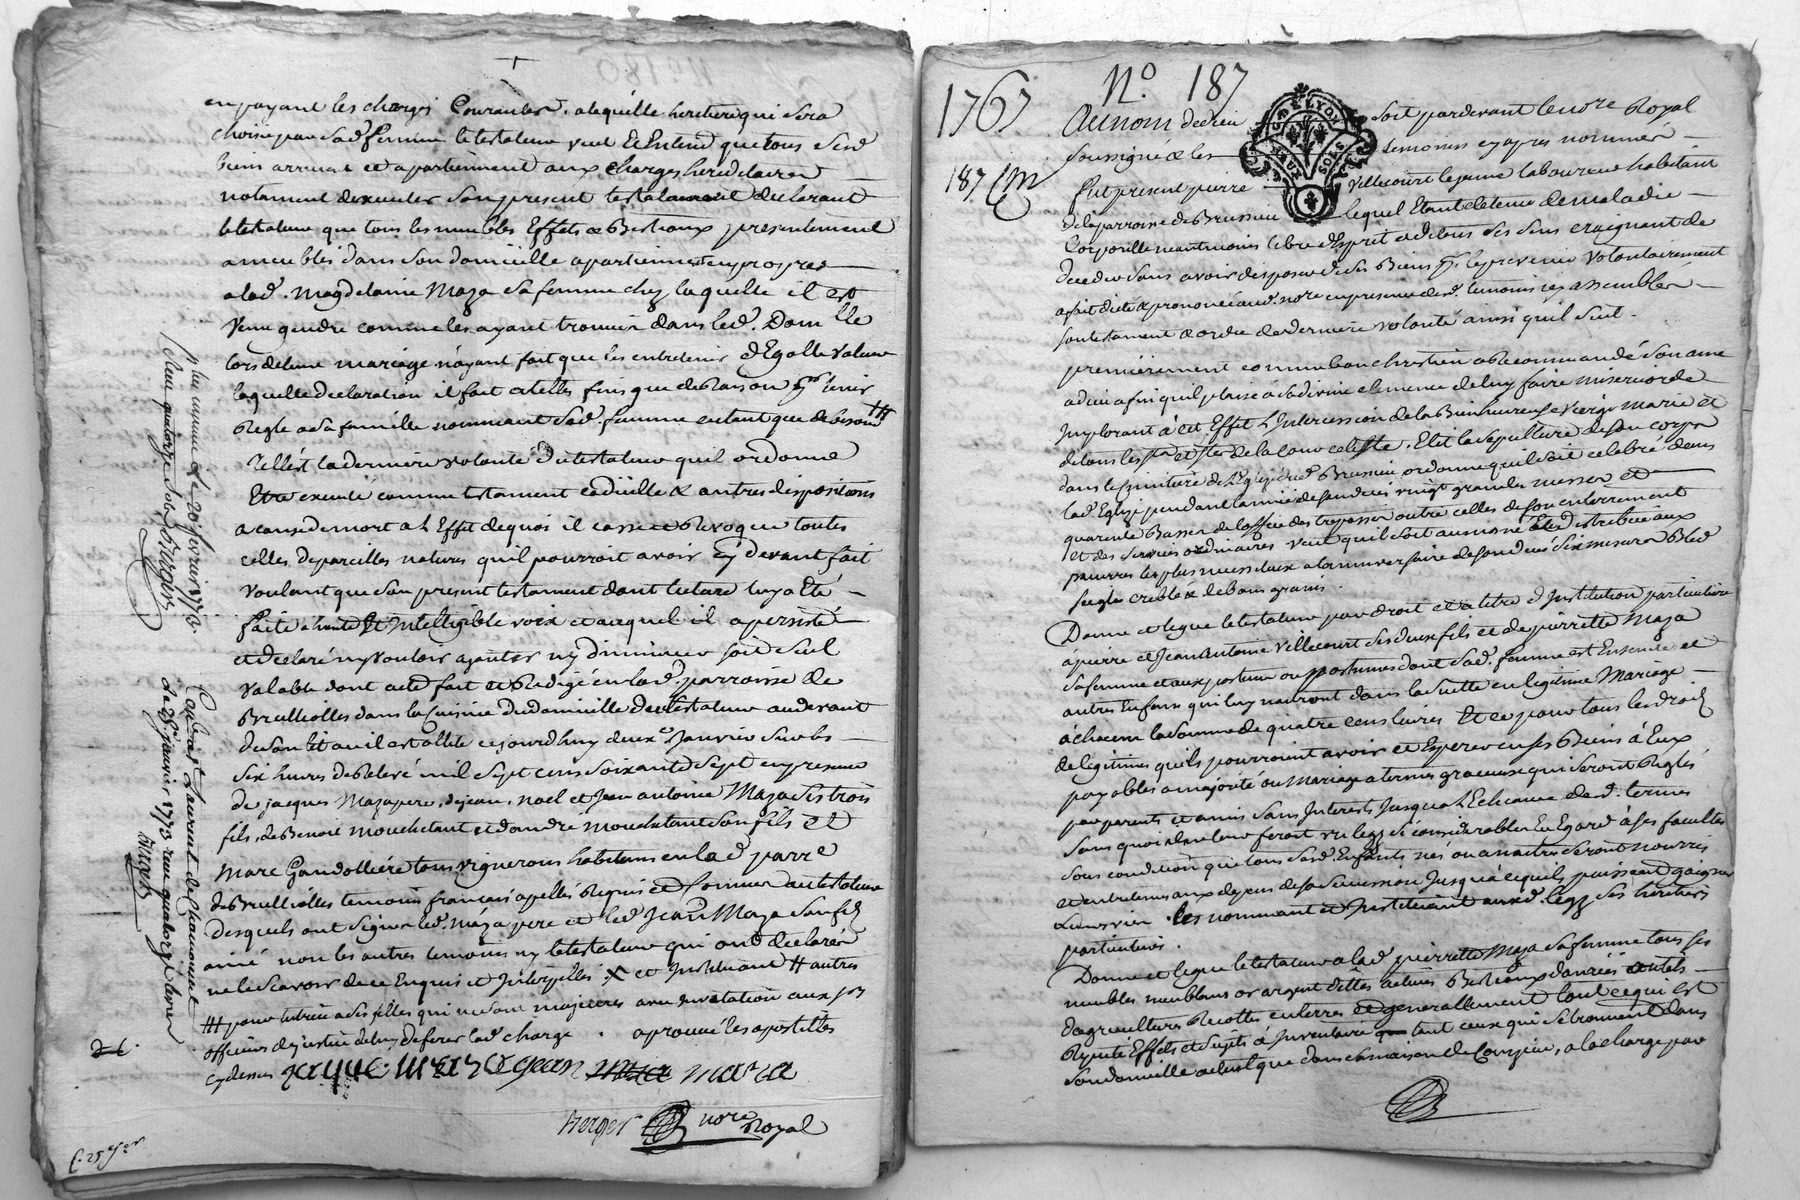 en payant les charges Courantes, a laquelle heritiere qui sera
choisie par sad. femme le testateur veut Et Entend que tous sesd.
biens arrivent et apartiennent aux charges hereditaires
notament d'executer son present testament declarant
le testateur que tous les meubles Effets & Bestiaux presentement
ameublés dans son domicille apartiennent en propres
a lad. Magdelaine Maza sa femme chez laquelle il est
venu gendre comme les ayant trouvés dans led. Domlle
lors de leur mariage n'ayant fait que les entretenir d'Egalle valeur
laquelle declaration il fait a telles fins que de Raison pr. tenir
Regle a sa famille nommant sad. femme en tant que de besoin #
Telle est la derniere volonté du testateur qu'il ordonne
Etre executé comme testament codicille & autres dispositions
a cause de mort a l'Effet de quoi il casse et Revoque toutes
celles de pareilles natures qu'il pourroit avoir cy devant fait
voulant que son present testament dont lecture luy a été
faite a haute Et Intelligible voix et auquel il a persisté
et declaré n'y vouloir ajouter ny diminuer soit seul
valable dont acte fait et Redigé en lad. parroisse de
Brullioles dans la Cuisine du domicille du testateur au devant
de son lit ou il est allité ce jourd'huy deux e. Janvier sur les
six heures de Relevé mil sept cens soixante sept en presence
de jacques Maza pere, de jean, noel et Jean antoine Maza ses trois
fils, de Benoit Mouchetant et d'andré Mouchetant son fils et
Marc Gandolliére tous vignerons habitans en lad. parre
de Brullioles temoins français apellés Requis et Connus au testateur
desquels ont signé led. Maza pere et led. Jean Maza son fils
ainé non les autres temoins ny le testateur qui ont declarés
ne le scavoir de ce Enquis et Interpellés X et Instituant # autres
# pour tutrice a ses filles qui ne sont majeures avec invitation aux srs
officiers de justice de luy deferer lad. charge . aprouvé les apostilles
cy dessus jaque Maza jean maza
Berger nore Royal
f. 25 jer
20 fevrier 1773
Berger
Controllé a St Laurent de Chamousset
le 25e janvier 1773 reçu quatorze livres
Berger
1767
No. 187
187
GEN. DE LYON
DEUX SOLS
Au nom de dieu soit pardevant le nore Royal
soussigné & les temoins cy apres nommés
fut present pierre Villecourt le jeune laboureur habitant
de la parroisse de Brussieu lequel Etant detenu de maladie
Corporelle neantmoins libre d'Esprit et de tous ses sens craignant de
deceder sans avoir disposé de ses Biens pr. le prevenir volontairement
a fait dicté & prononcé aud. nore en presence desd. temoins icy assemblés
son testament & ordre de derniere volonté ainsi qu'il suit.
premierement comme bon chretien a Recommandé son ame
a dieu afin qu'il plaise a sa divine clemence de luy faire misericorde
Implorant à cet Effet L'Intercession de la Bienheureuse Vierge Marie et
de tous les sts et stes de la cour celeste. Elit la sepulture de son corps
dans le Cimitiere de L'Eglise dud. Brussieu ordonne qu'il soit celebré dans
lad. Eglise pendant l'année de son decés vingt grandes messes et
quarente Basses de l'office des trepassés outre celles de son enterrement
et des services ordinaires veut qu'il soit aumoné Et distribué aux
pauvres les plus necessiteux a l'anniversaire de son decés six mesures Bled
seigle criblé & de bon grains.
Donne et legue le testateur par droit et a titre d'Institution particuliere
à pierre et Jean Antoine Villecourt ses deux fils et de pierrette Maza
sa femme et aux postume ou postumes dont sad. femme est Enceinte et
autres Enfans qui luy naitront dans la suitte en legitime Mariage
à chacun la somme de quatre cens livres Et ce pour tous les droits
de legitimes qu'ils pourroient avoir et Esperer en ses Biens à Eux
payables a majorité ou Mariage a termes gracieux qui seront Reglés
par parents et amis sans Interests Jusqu'a L'Echeance desd. termes
sans quoi il en leur feroit un legs si considerables En Egard à ses facultes
sous condition que tous sesd. Enfants nés ou a naitre seront nourris
et entretenus aux depens de sa succession Jusqu'a ce qu'ils puissent gaigner
Leurs vies. les nommant et Instituant auxd. legs ses heritiers
particuliers.
Donne et legue le testateur a lad. pierrette Maza sa femme tous ses
meubles meublans or argent dettes actives Bestiaux danrées outils
d'agricultures Recoltes en terres et generallement tout ce qui est
Reputé Effets et sujets à Inventaire tant ceux qui se trouvent dans
son domicille actuel que dans sa maison de Courzieu, a la charge par